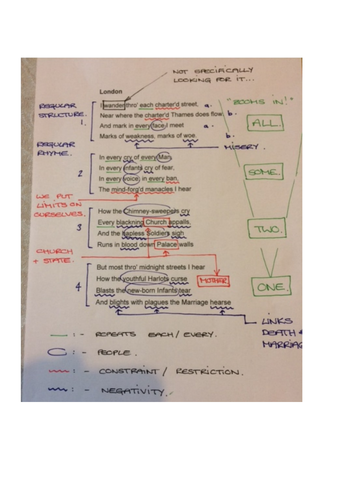 NOT SPECIFICALLY
LOOKING FOR IT...
London
REGULAR
STRUCTURE.
"ZOOMS IN!"
1.
I wander thro' each charter'd street, a.
Near where the charter'd Thames does flow, b.
And mark in every face I meet a.
Marks of weakness, marks of woe. b.
ALL.
REGULAR
RHYME.
MISERY.
2
In every cry of every Man,
In every Infants cry of fear,
In every voice; in every ban,
The mind-forg'd manacles I hear
SOME.
WE PUT
LIMITS ON
OURSELVES.
3
How the Chimney-sweepers cry
Every blackning Church appalls,
And the hapless Soldiers sigh
Runs in blood down Palace walls
TWO.
CHURCH
+ STATE.
4
But most thro' midnight streets I hear
How the youthful Harlots curse
MOTHER
Blasts the new-born Infants tear
And blights with plagues the Marriage hearse
ONE.
LINKS
DEATH
MARRIAG
:- REPEATS EACH/EVERY.
:- PEOPLE.
:- CONSTRAINT / RESTRICTION.
:- NEGATIVITY.